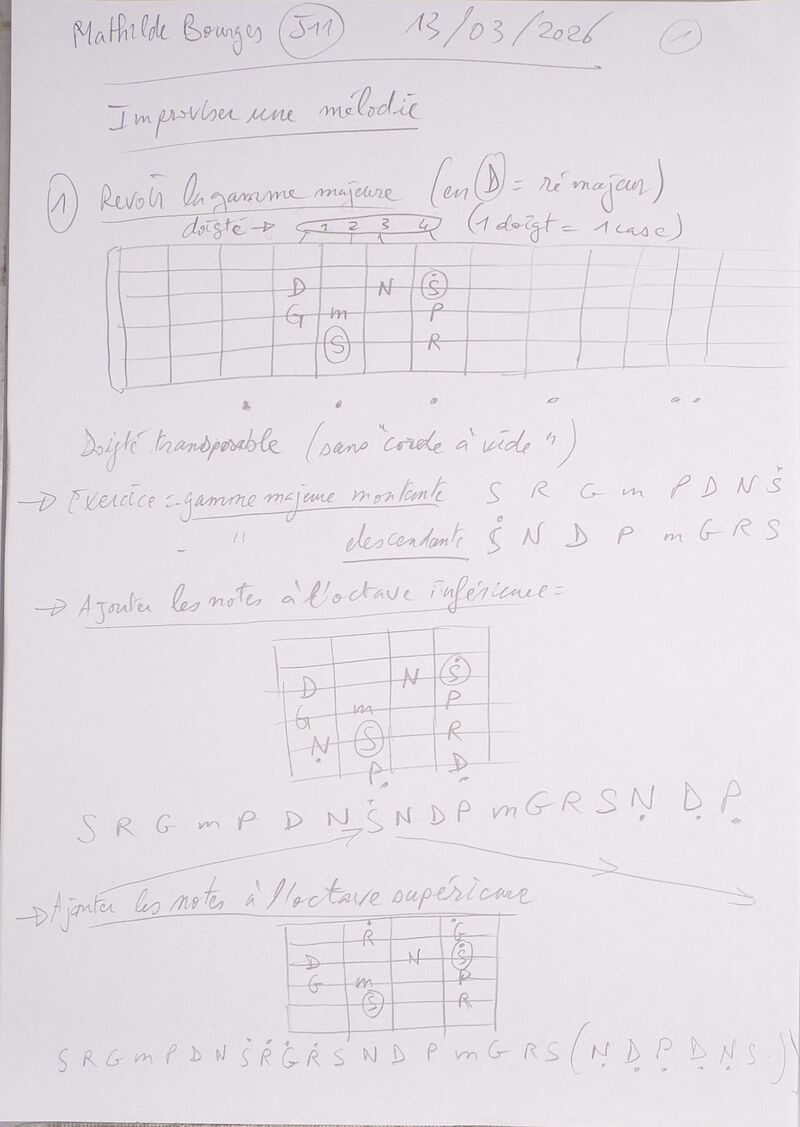 Mathilde Bourges J11 13/03/2026 1
Improviser une mélodie
1 Revoir la gamme majeure (en D = ré majeur)
doigté → 1 2 3 4 (1 doigt = 1 case)
D N Ṡ
G m P
S R
Doigté transposable (sans "corde à vide")
→ Exercice = - gamme majeure montante S R G m P D N Ṡ
- " descendante Ṡ N D P m G R S
→ Ajouter les notes à l'octave inférieure =
D N Ṡ
G m P
Ṇ S R
P̣ Ḍ
S R G m P D N Ṡ N D P m G R S Ṇ Ḍ P̣
→ Ajouter les notes à l'octave supérieure
Ṙ Ġ
D N Ṡ
G m P
S R
S R G m P D N Ṡ Ṙ Ġ Ṙ S N D P m G R S (Ṇ Ḍ P̣ Ḍ Ṇ S)